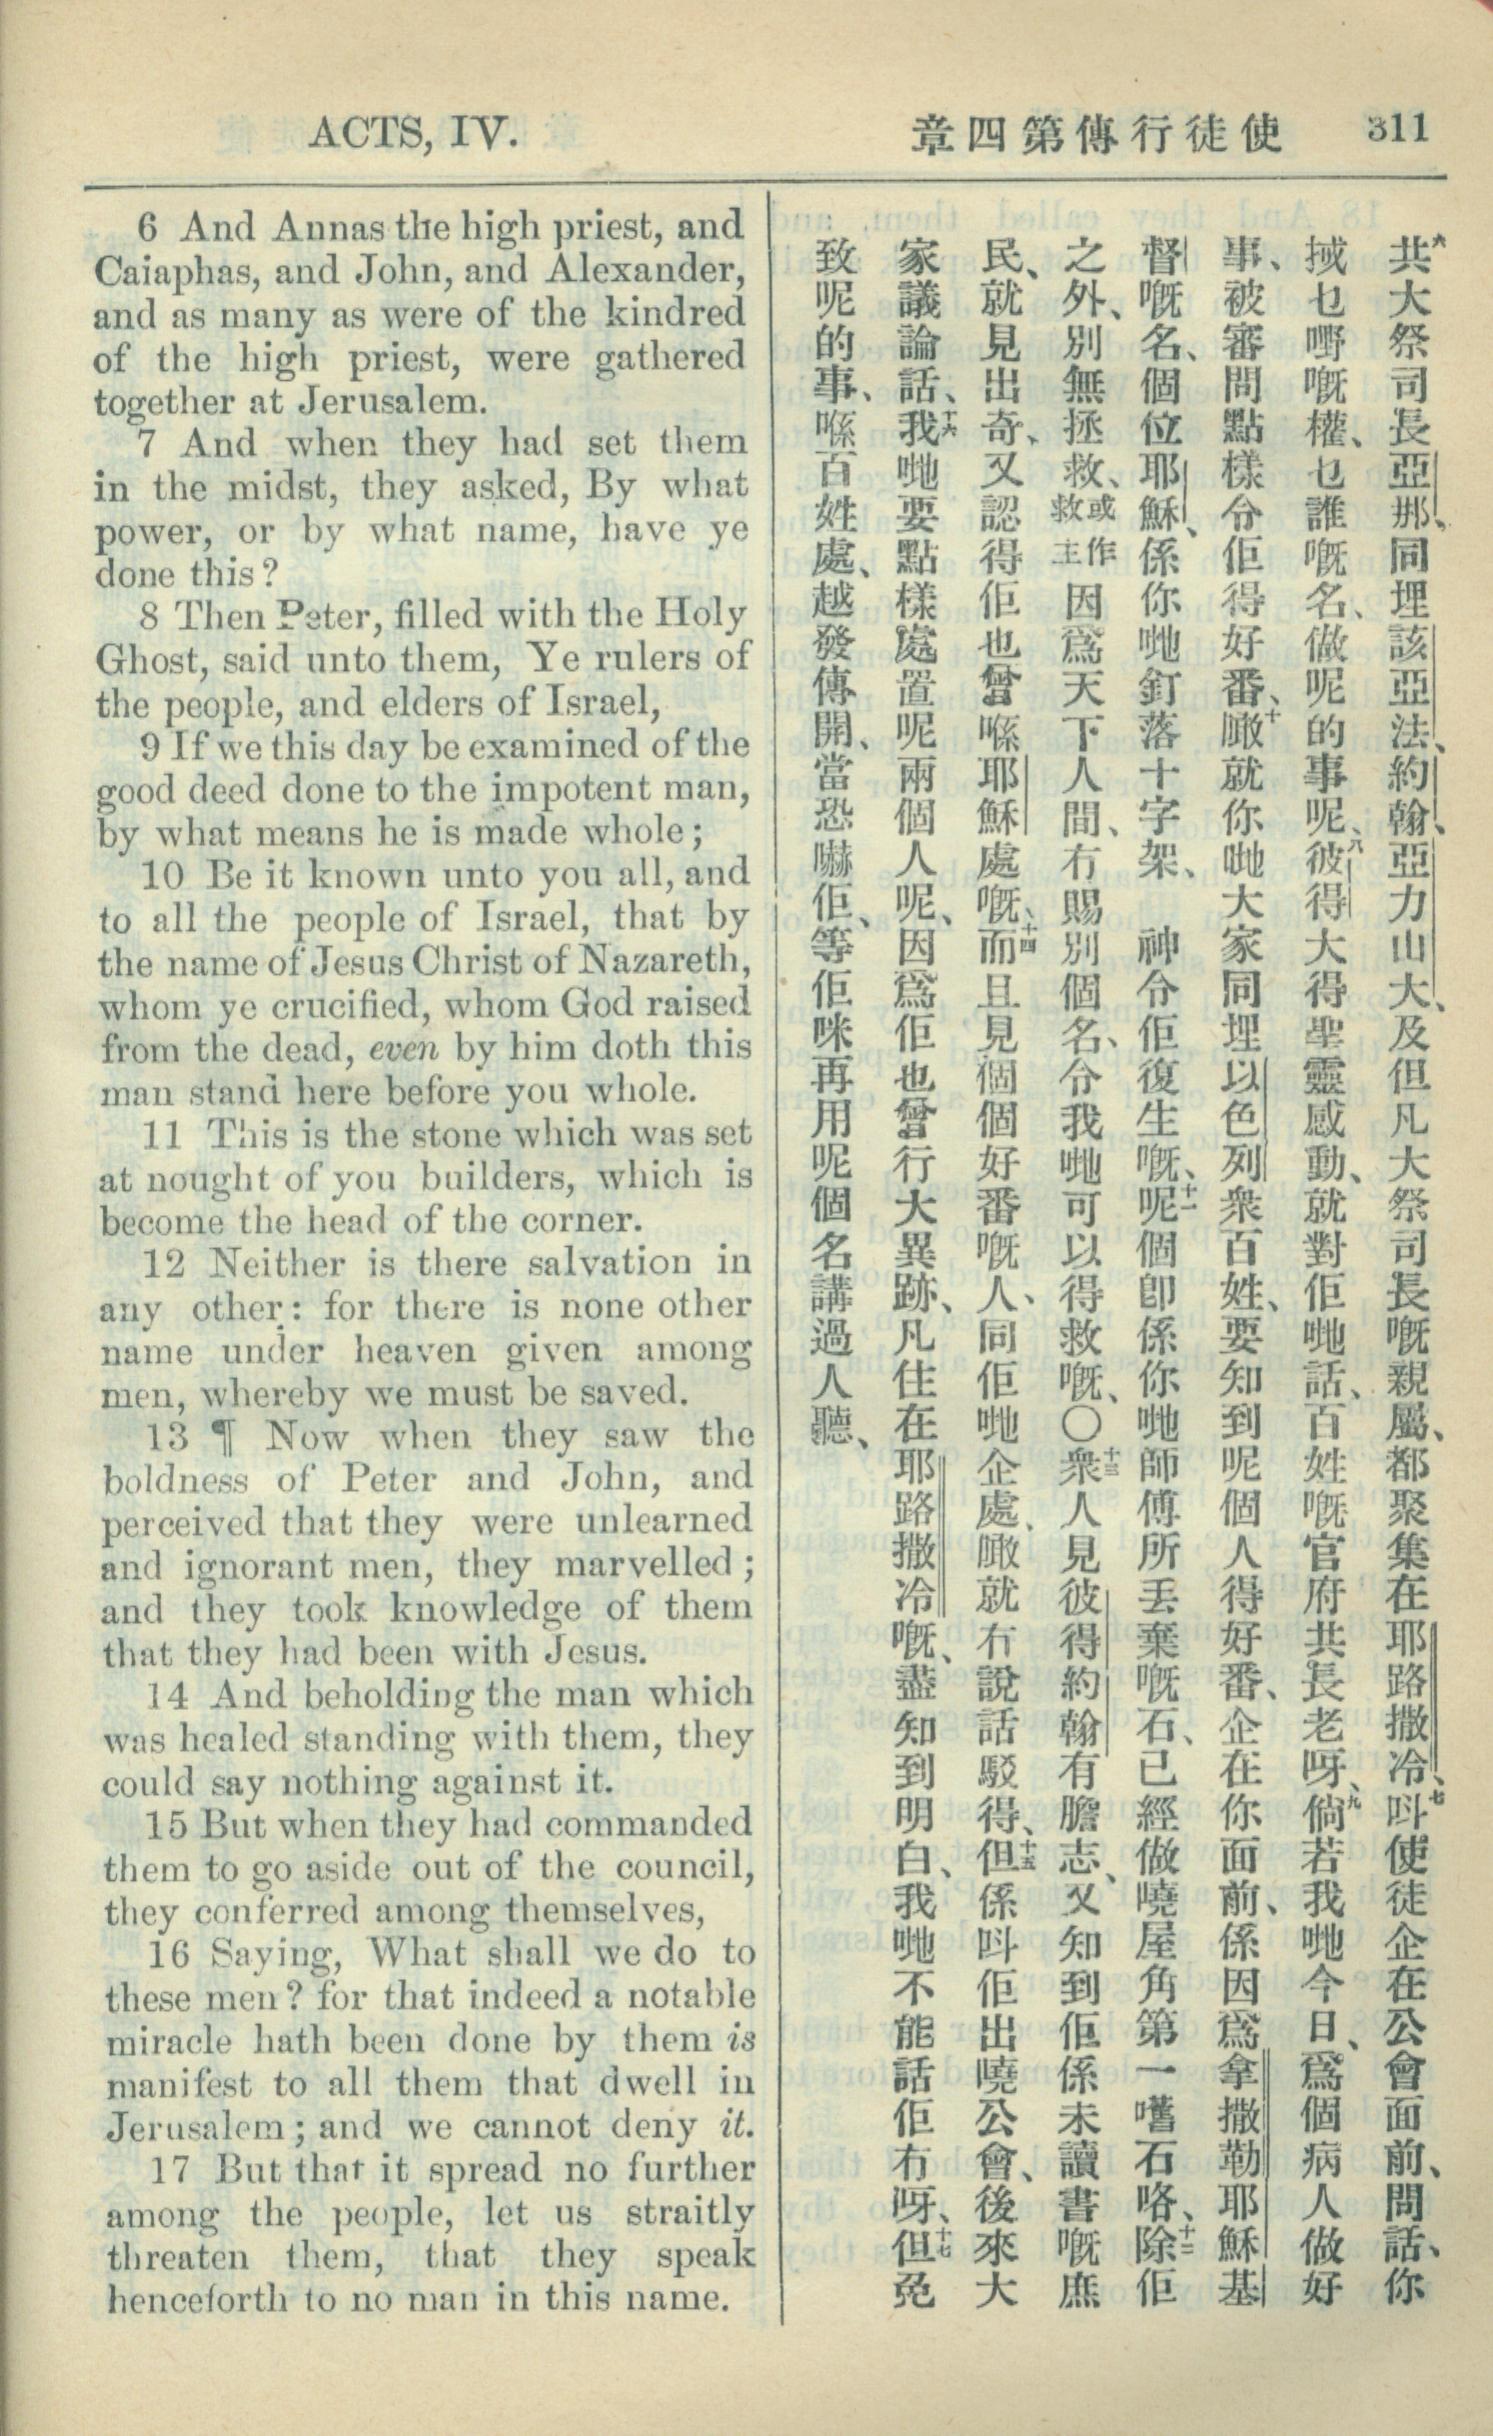 ACTS, IV.
使徒行傳第四章
311
6 And Annas the high priest, and
Caiaphas, and John, and Alexander,
and as many as were of the kindred
of the high priest, were gathered
together at Jerusalem.
7 And when they had set them
in the midst, they asked, By what
power, or by what name, have ye
done this?
8 Then Peter, filled with the Holy
Ghost, said unto them, Ye rulers of
the people, and elders of Israel,
9 If we this day be examined of the
good deed done to the impotent man,
by what means he is made whole;
10 Be it known unto you all, and
to all the people of Israel, that by
the name of Jesus Christ of Nazareth,
whom ye crucified, whom God raised
from the dead, even by him doth this
man stand here before you whole.
11 This is the stone which was set
at nought of you builders, which is
become the head of the corner.
12 Neither is there salvation in
any other: for there is none other
name under heaven given among
men, whereby we must be saved.
13 ¶ Now when they saw the
boldness of Peter and John, and
perceived that they were unlearned
and ignorant men, they marvelled;
and they took knowledge of them
that they had been with Jesus.
14 And beholding the man which
was healed standing with them, they
could say nothing against it.
15 But when they had commanded
them to go aside out of the council,
they conferred among themselves,
16 Saying, What shall we do to
these men? for that indeed a notable
miracle hath been done by them is
manifest to all them that dwell in
Jerusalem; and we cannot deny it.
17 But that it spread no further
among the people, let us straitly
threaten them, that they speak
henceforth to no man in this name.
六共大祭司長亞那、同埋該亞法、約翰、亞力山大、及但凡大祭司長嘅親屬、都聚集在耶路撒冷、七呌使徒企在公會面前、問話、你
㧕乜嘢嘅權、乜誰嘅名、做呢的事呢、八彼得大得聖靈感動、就對佢哋話、百姓嘅官府共長老呀、九倘若我哋今日、爲個病人做好
事、被審問點樣令佢得好番、十噉就你哋大家同埋以色列衆百姓、要知到呢個人得好番、企在你面前、係因爲拿撒勒耶穌基
督嘅名、個位耶穌、係你哋釘落十字架、 神令佢復生嘅、十一呢個卽係你哋師傅所丢棄嘅石、已經做嘵屋角第一嗜石咯、十二除佢
之外、別無拯救、或作救主因爲天下人間、冇賜別個名、令我哋可以得救嘅、〇十三衆人見彼得約翰有膽志、又知到佢係未讀書嘅庶
民、就見出奇、又認得佢也曾喺耶穌處嘅、十四而且見個個好番嘅人、同佢哋企處、噉就冇說話駁得、十五但係呌佢出嘵公會、後來大
家議論話、十六我哋要點樣處置呢兩個人呢、因爲佢也曾行大異跡、凡住在耶路撒冷嘅、盡知到明白、我哋不能話佢冇呀、十七但免
致呢的事、喺百姓處、越發傳開、當恐嚇佢、等佢咪再用呢個名講過人聽、